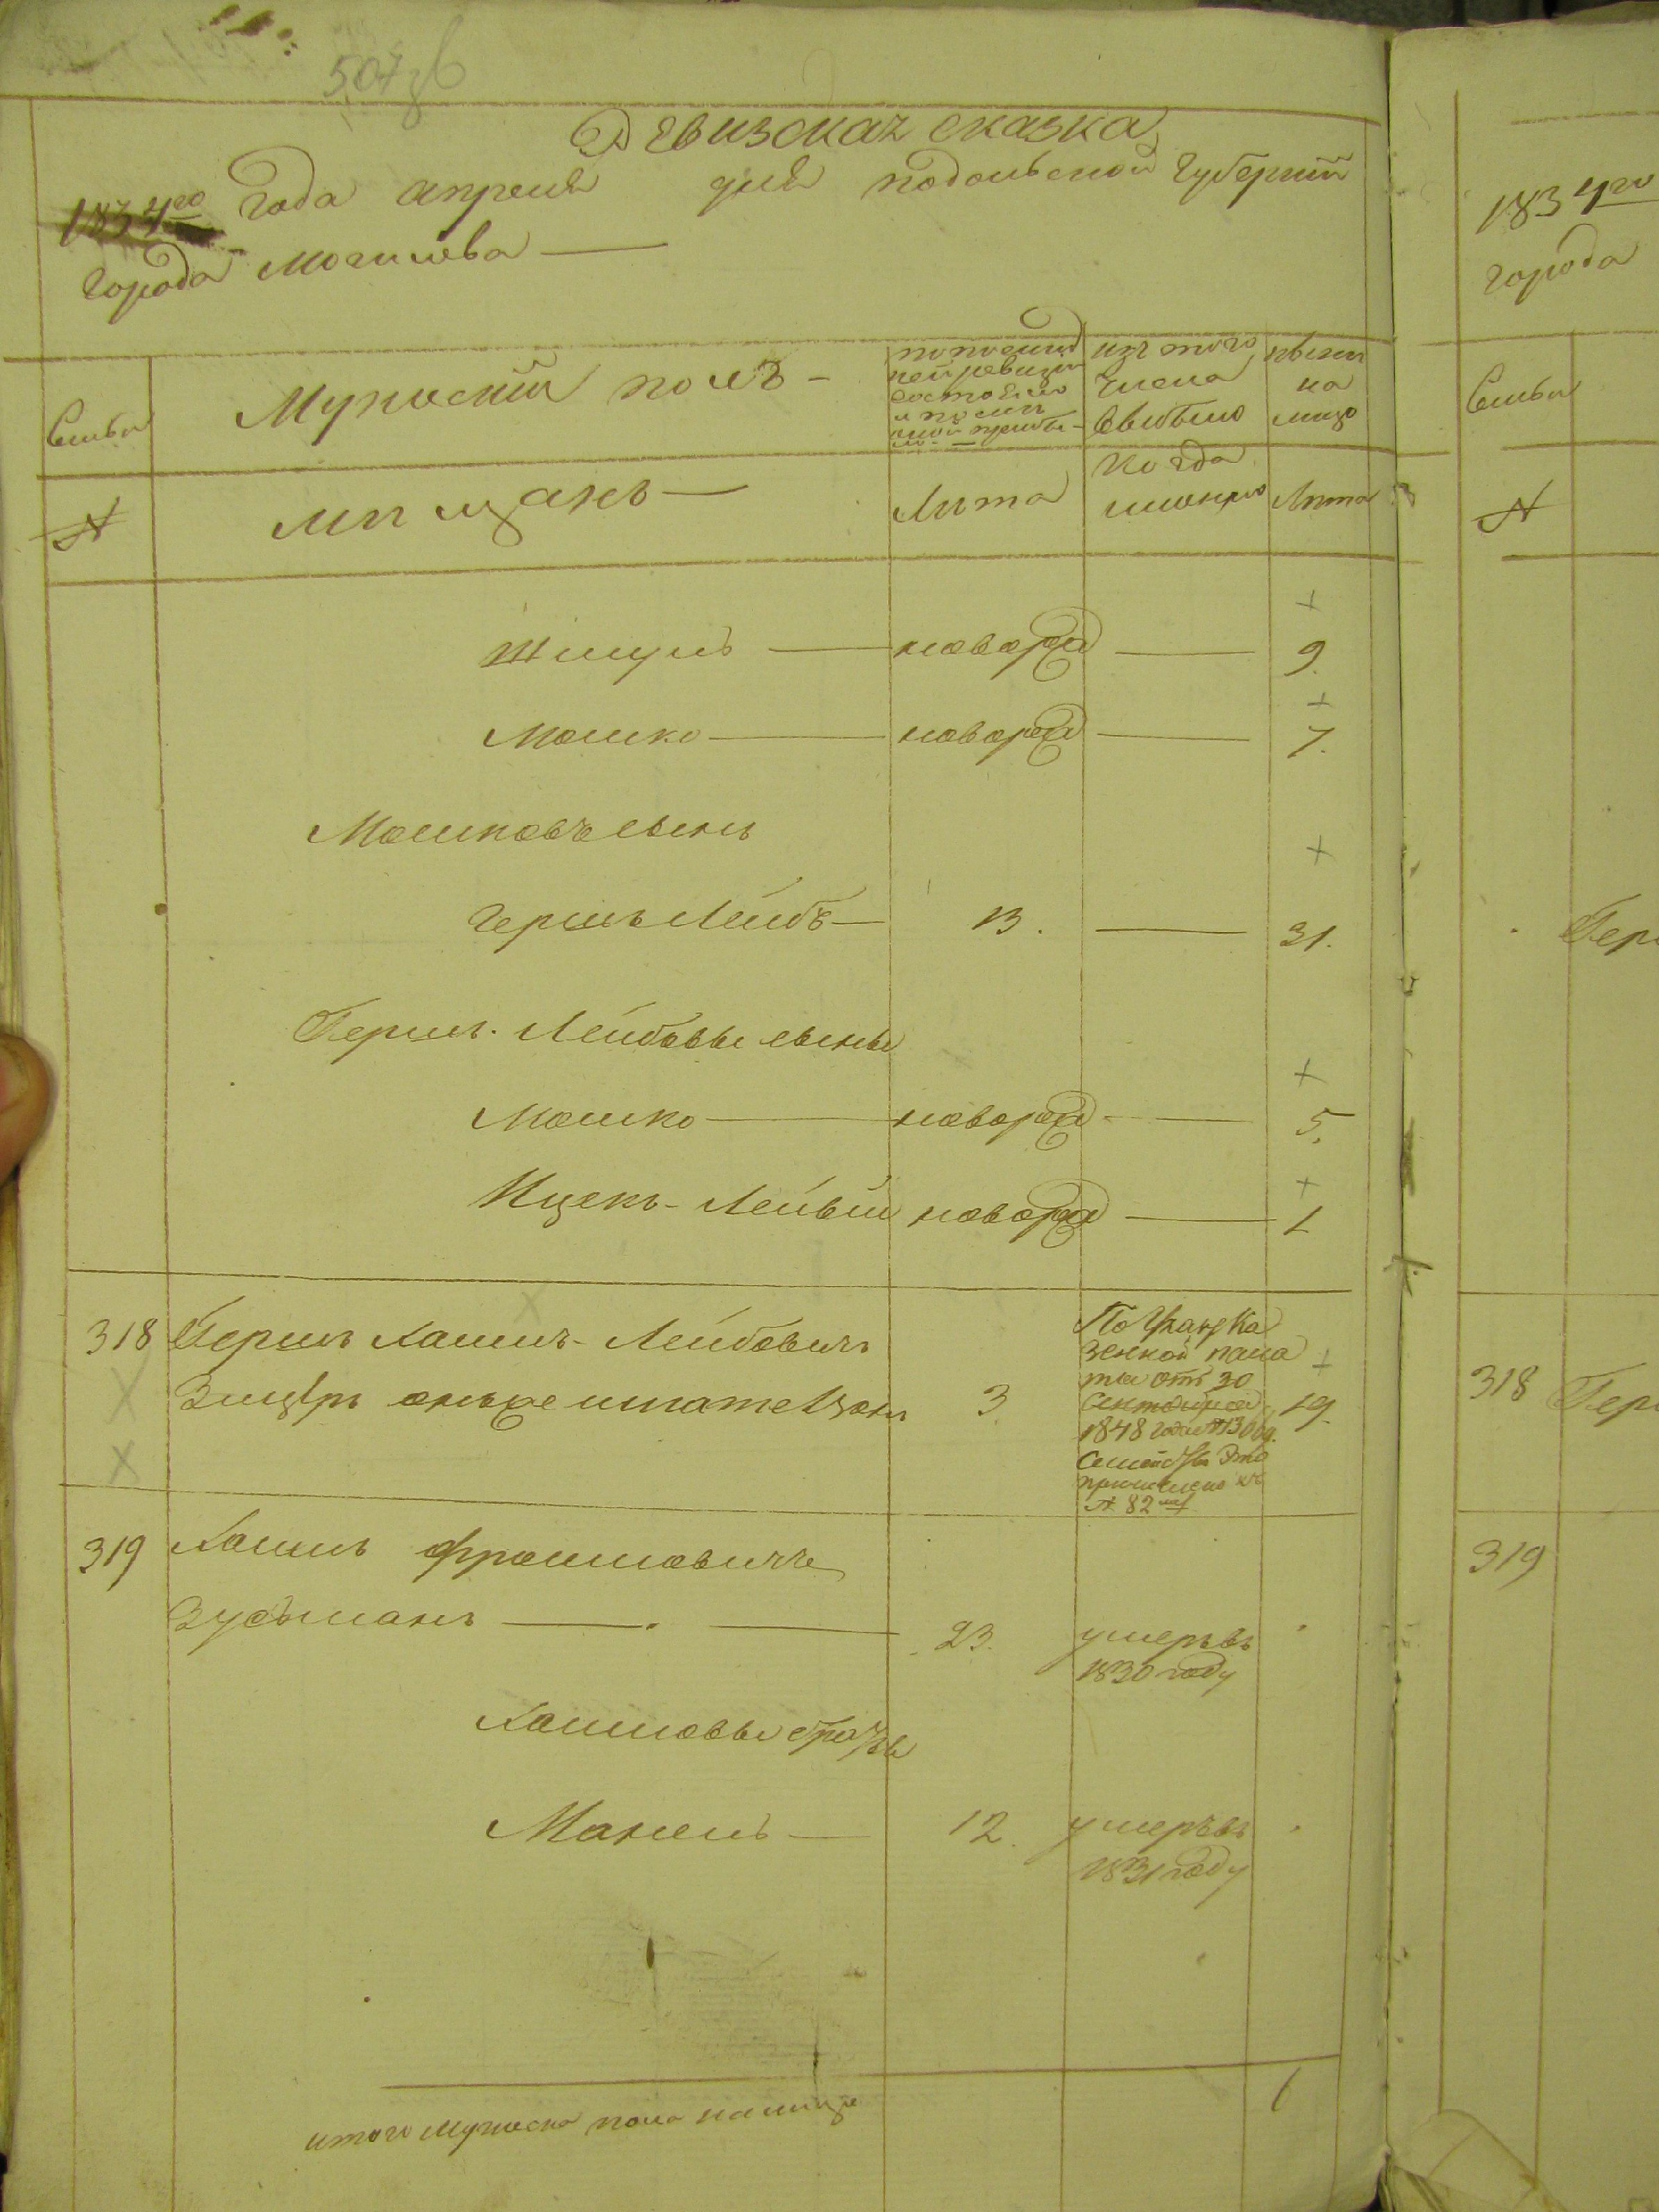 507
Ревизская сказка
1834го года апреля дня подольской губернии
города Могилева
Семьи
Мужеский полъ
по последней ревизии состояло и после оной прибыло
изъ того числа выбыло
ныне на лицо
№
мещанъ
Лета
когда именно
Лета
Шмуль новорож 9.
Мошко новорож 7.
Мошковъ сынъ
Гершъ Лейбъ 13. 31.
Гершъ Лейбовы сыны
Мошко новорож 5.
Ицекъ-Лейвий новорож 1
318 Гершъ Хаимъ-Лейбовичъ
3 19.
По Указу Ка
зенной пала
ты отъ 30
Сентября
1848 года №
Семейство Это
причислено къ
№ 82
319 Хаимъ Фроимовичъ
Зусьманъ 23. умеръ въ
1830 году
Хаимовы братья
Манель 12. умеръ въ
1831 году
итого мужеска пола на лице
1834го
города
Семьи
№
Гер
318 Гер
319